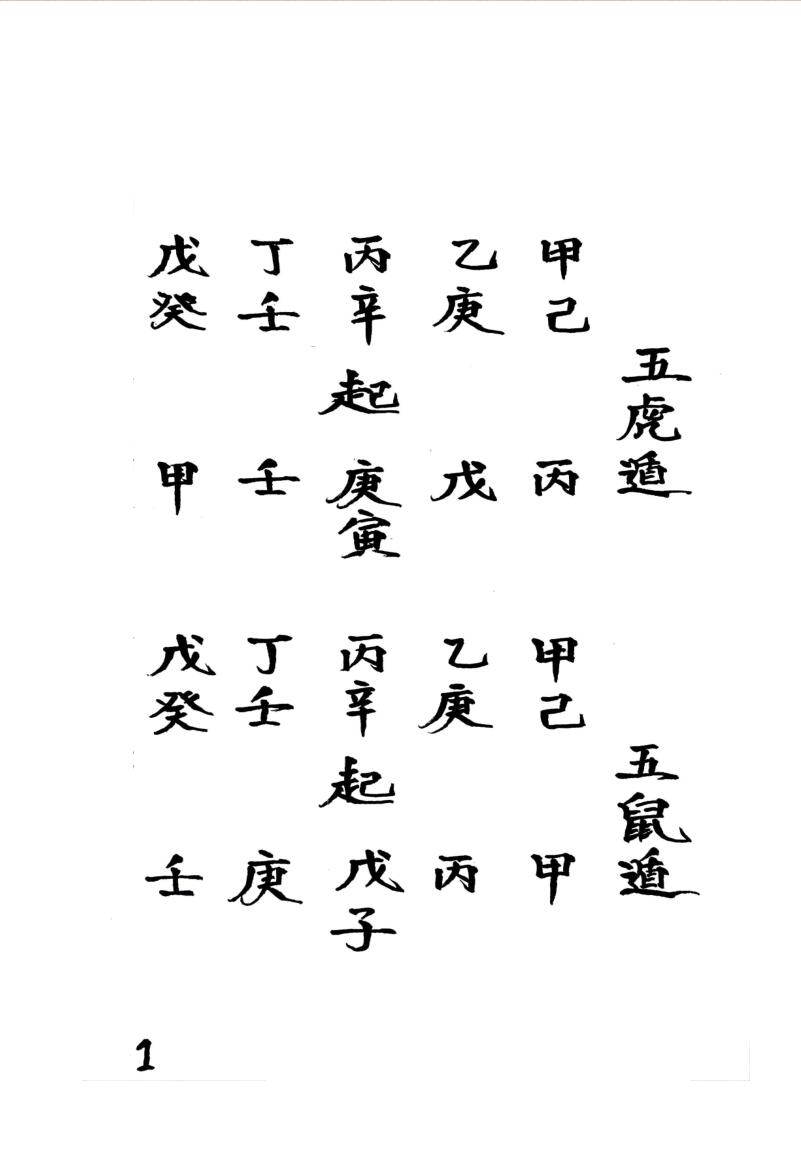 五虎遁
甲己 丙
乙庚 戊
丙辛 起 庚寅
丁壬 壬
戊癸 甲
五鼠遁
甲己 甲
乙庚 丙
丙辛 起 戊子
丁壬 庚
戊癸 壬
1